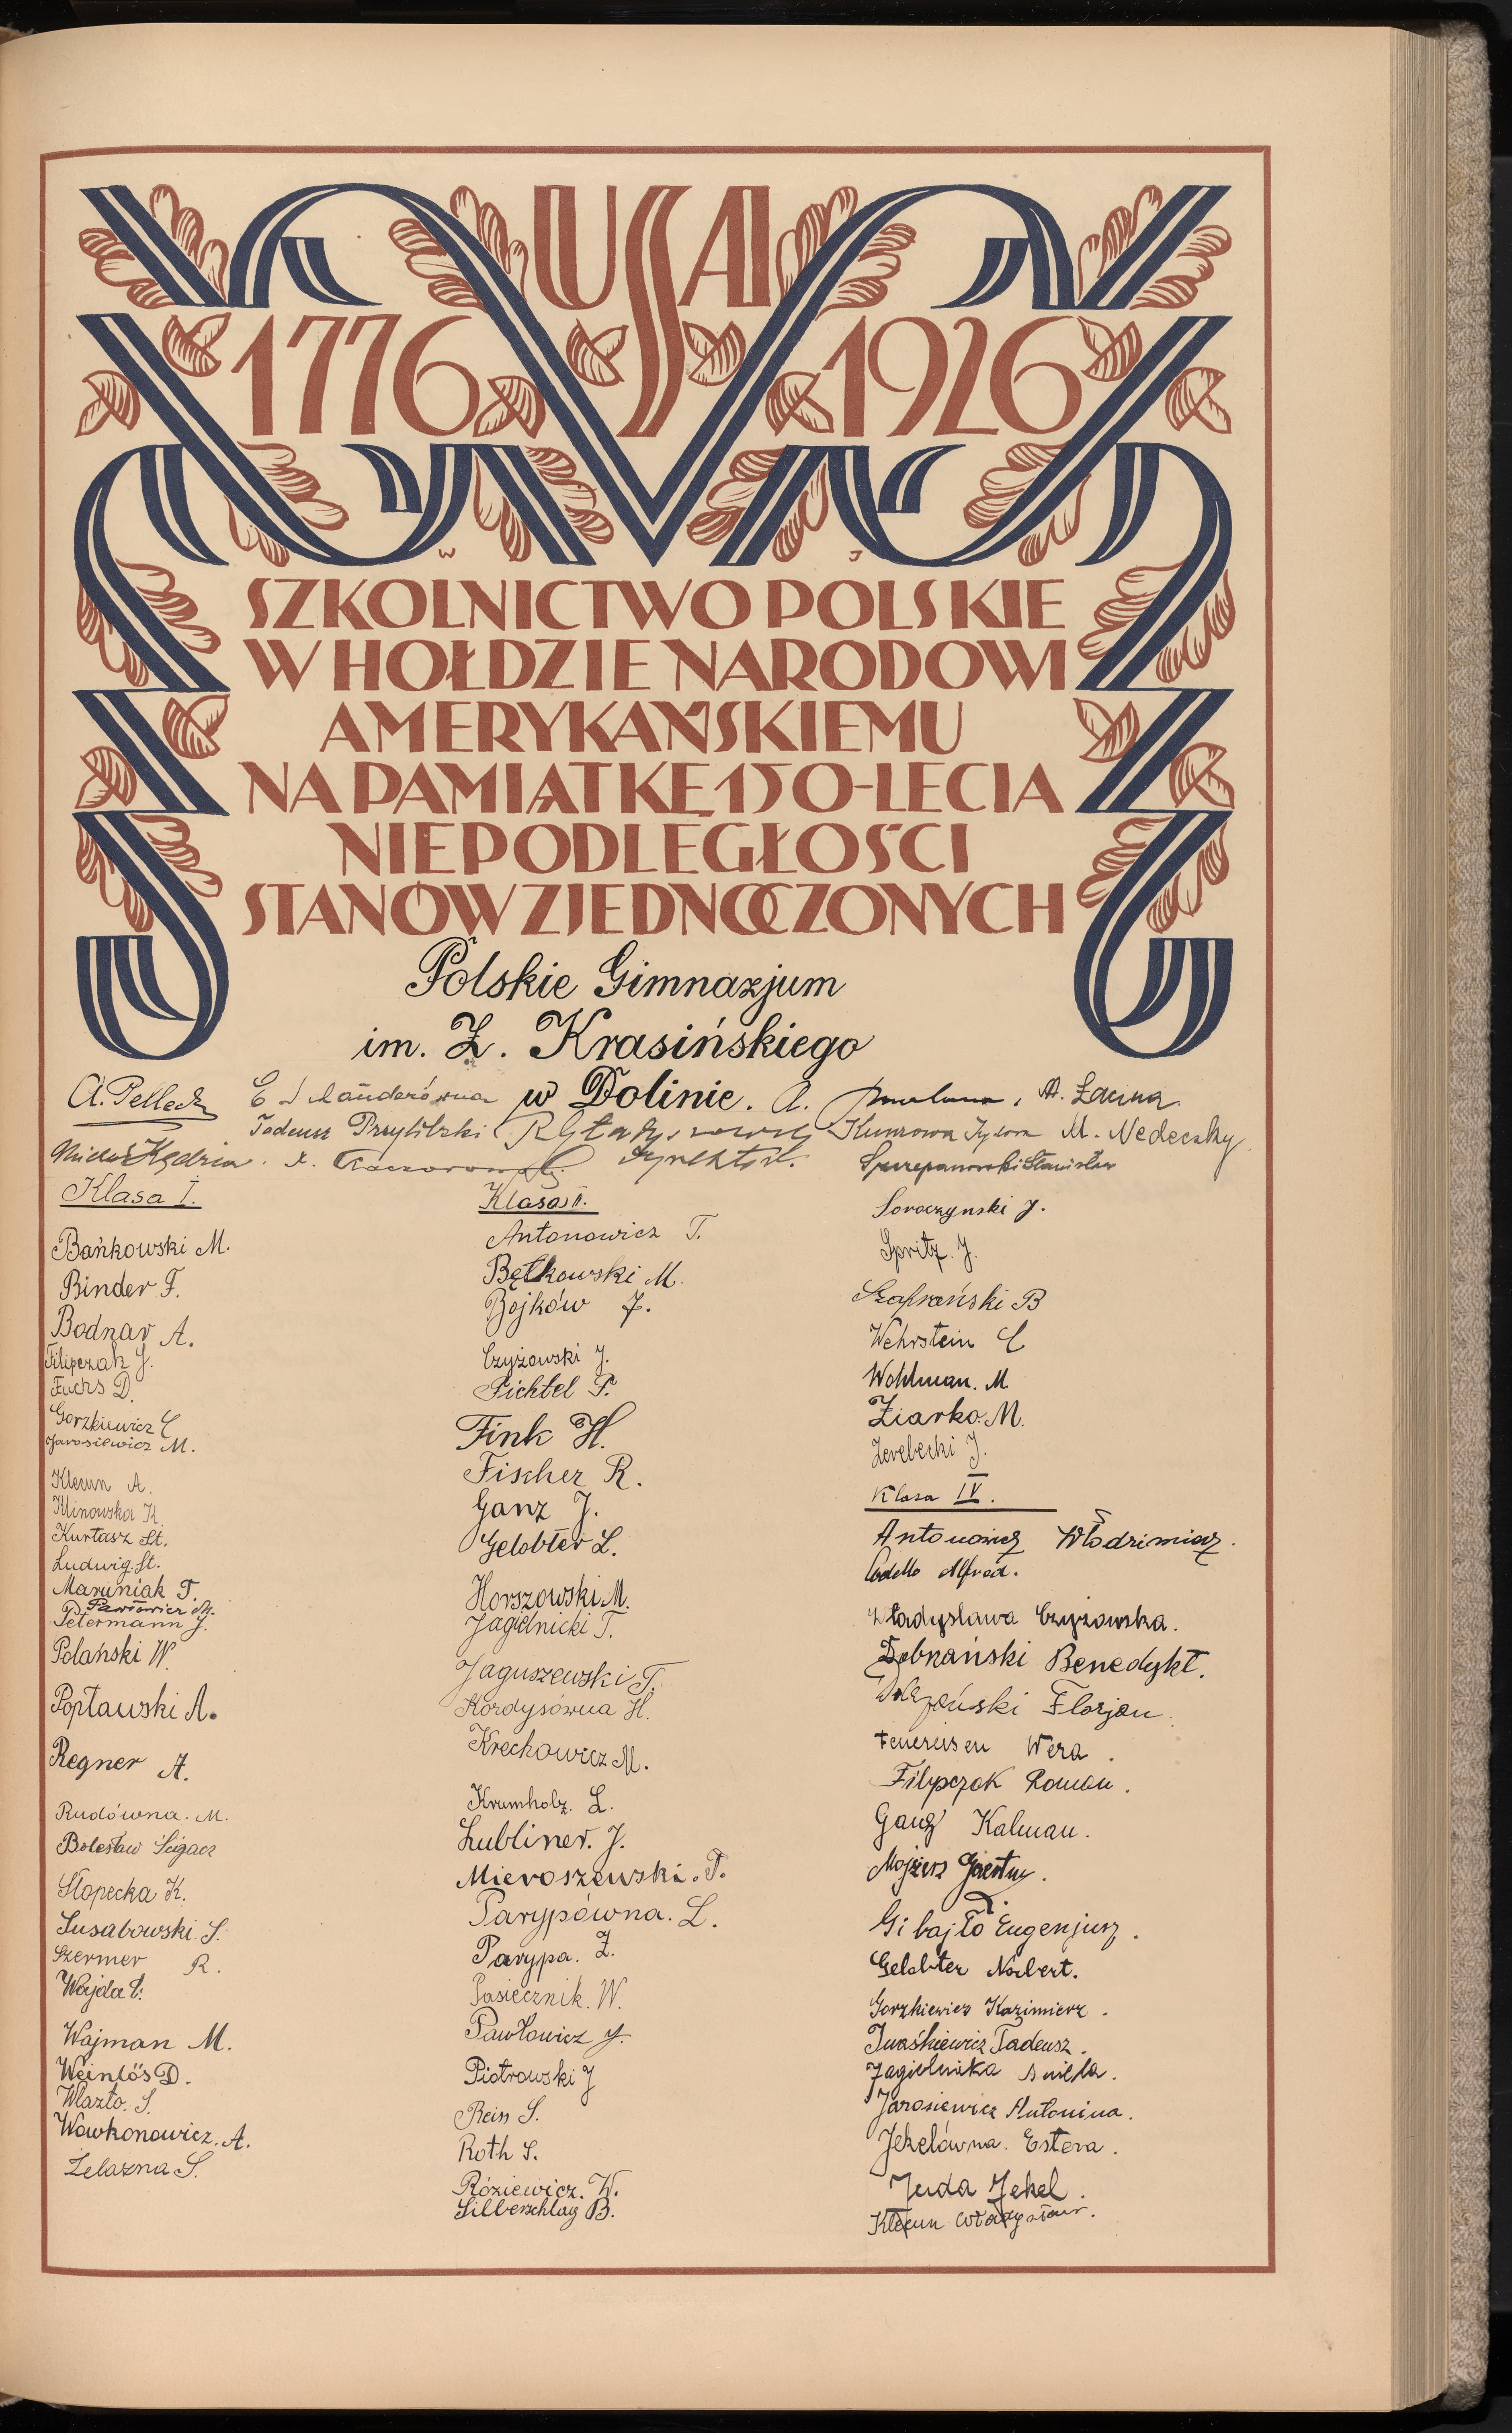 USA
1776 1926
W J
SZKOLNICTWO POLSKIE
W HOŁDZIE NARODOWI
AMERYKAŃSKIEMU
NA PAMIĄTKĘ 150-LECIA
NIEPODLEGŁOŚCI
STANÓW ZJEDNOCZONYCH
Polskie Gimnazjum
im. Z. Krasińskiego
w Dolinie.
A. Pelleck
A. Łacina
Tadeusz Przyłibski
M. Nedeczky
Kędzia
Klasa I.
Bańkowski M.
Binder F.
Bodnar A.
Filipczak J.
Fuchs D.
Gorzkiewicz E
Jarosiewicz M.
Klecun A.
Klinowska K.
Kurtasz St.
Ludwig St.
Maryniak T.
Pawłowicz M.
Petermann J.
Polański W.
Popławski A.
Regner A.
Rudówna. M.
Bolesław Ścigacz
Słopecka K.
Susabowski S.
Szermer R.
Wajda E.
Wajman M.
Weinlös D.
Wlazło. S.
Wowkonowicz. A.
Żelazna S.
Klasa II.
Antonowicz T.
Bętkowski M.
Bojków J.
Czyżowski J.
Fichtel F.
Fink H.
Fischer R.
Ganz J.
Gelobter L.
Horszowski M.
Jagielnicki T.
Jaguszewski T.
Kordysówna H.
Krechowicz M.
Krumholz. L.
Lubliner. J.
Mieroszewski. T.
Parypówna. L.
Parypa. Z.
Pasiecznik. W.
Pawłowicz J.
Piotrowski J
Rein S.
Roth S.
Róziewicz. W.
Silberschlag B.
Szczepanowski Stanisław
Soroczynski J.
Spritz. J.
Szafrański B
Wehrstein E
Wohlman. M
Ziarko. M.
Zerebecki J.
Klasa IV.
Antonowicz Włodzimierz.
Codello Alfred.
Władysława Czyżowska.
Dobrzański Benedykt.
Florjan.
Feuereisen Wera.
Filipczak Roman.
Ganz Kalman.
Mojżesz
Gibajło Eugenjusz.
Gelobter Norbert.
Gorzkiewicz Kazimierz.
Iwaśkiewicz Tadeusz.
Jagielnicka Aniela.
Jarosiewicz Antonina.
Jekelówna. Estera.
Juda Jekel.
Klecun Władysław.